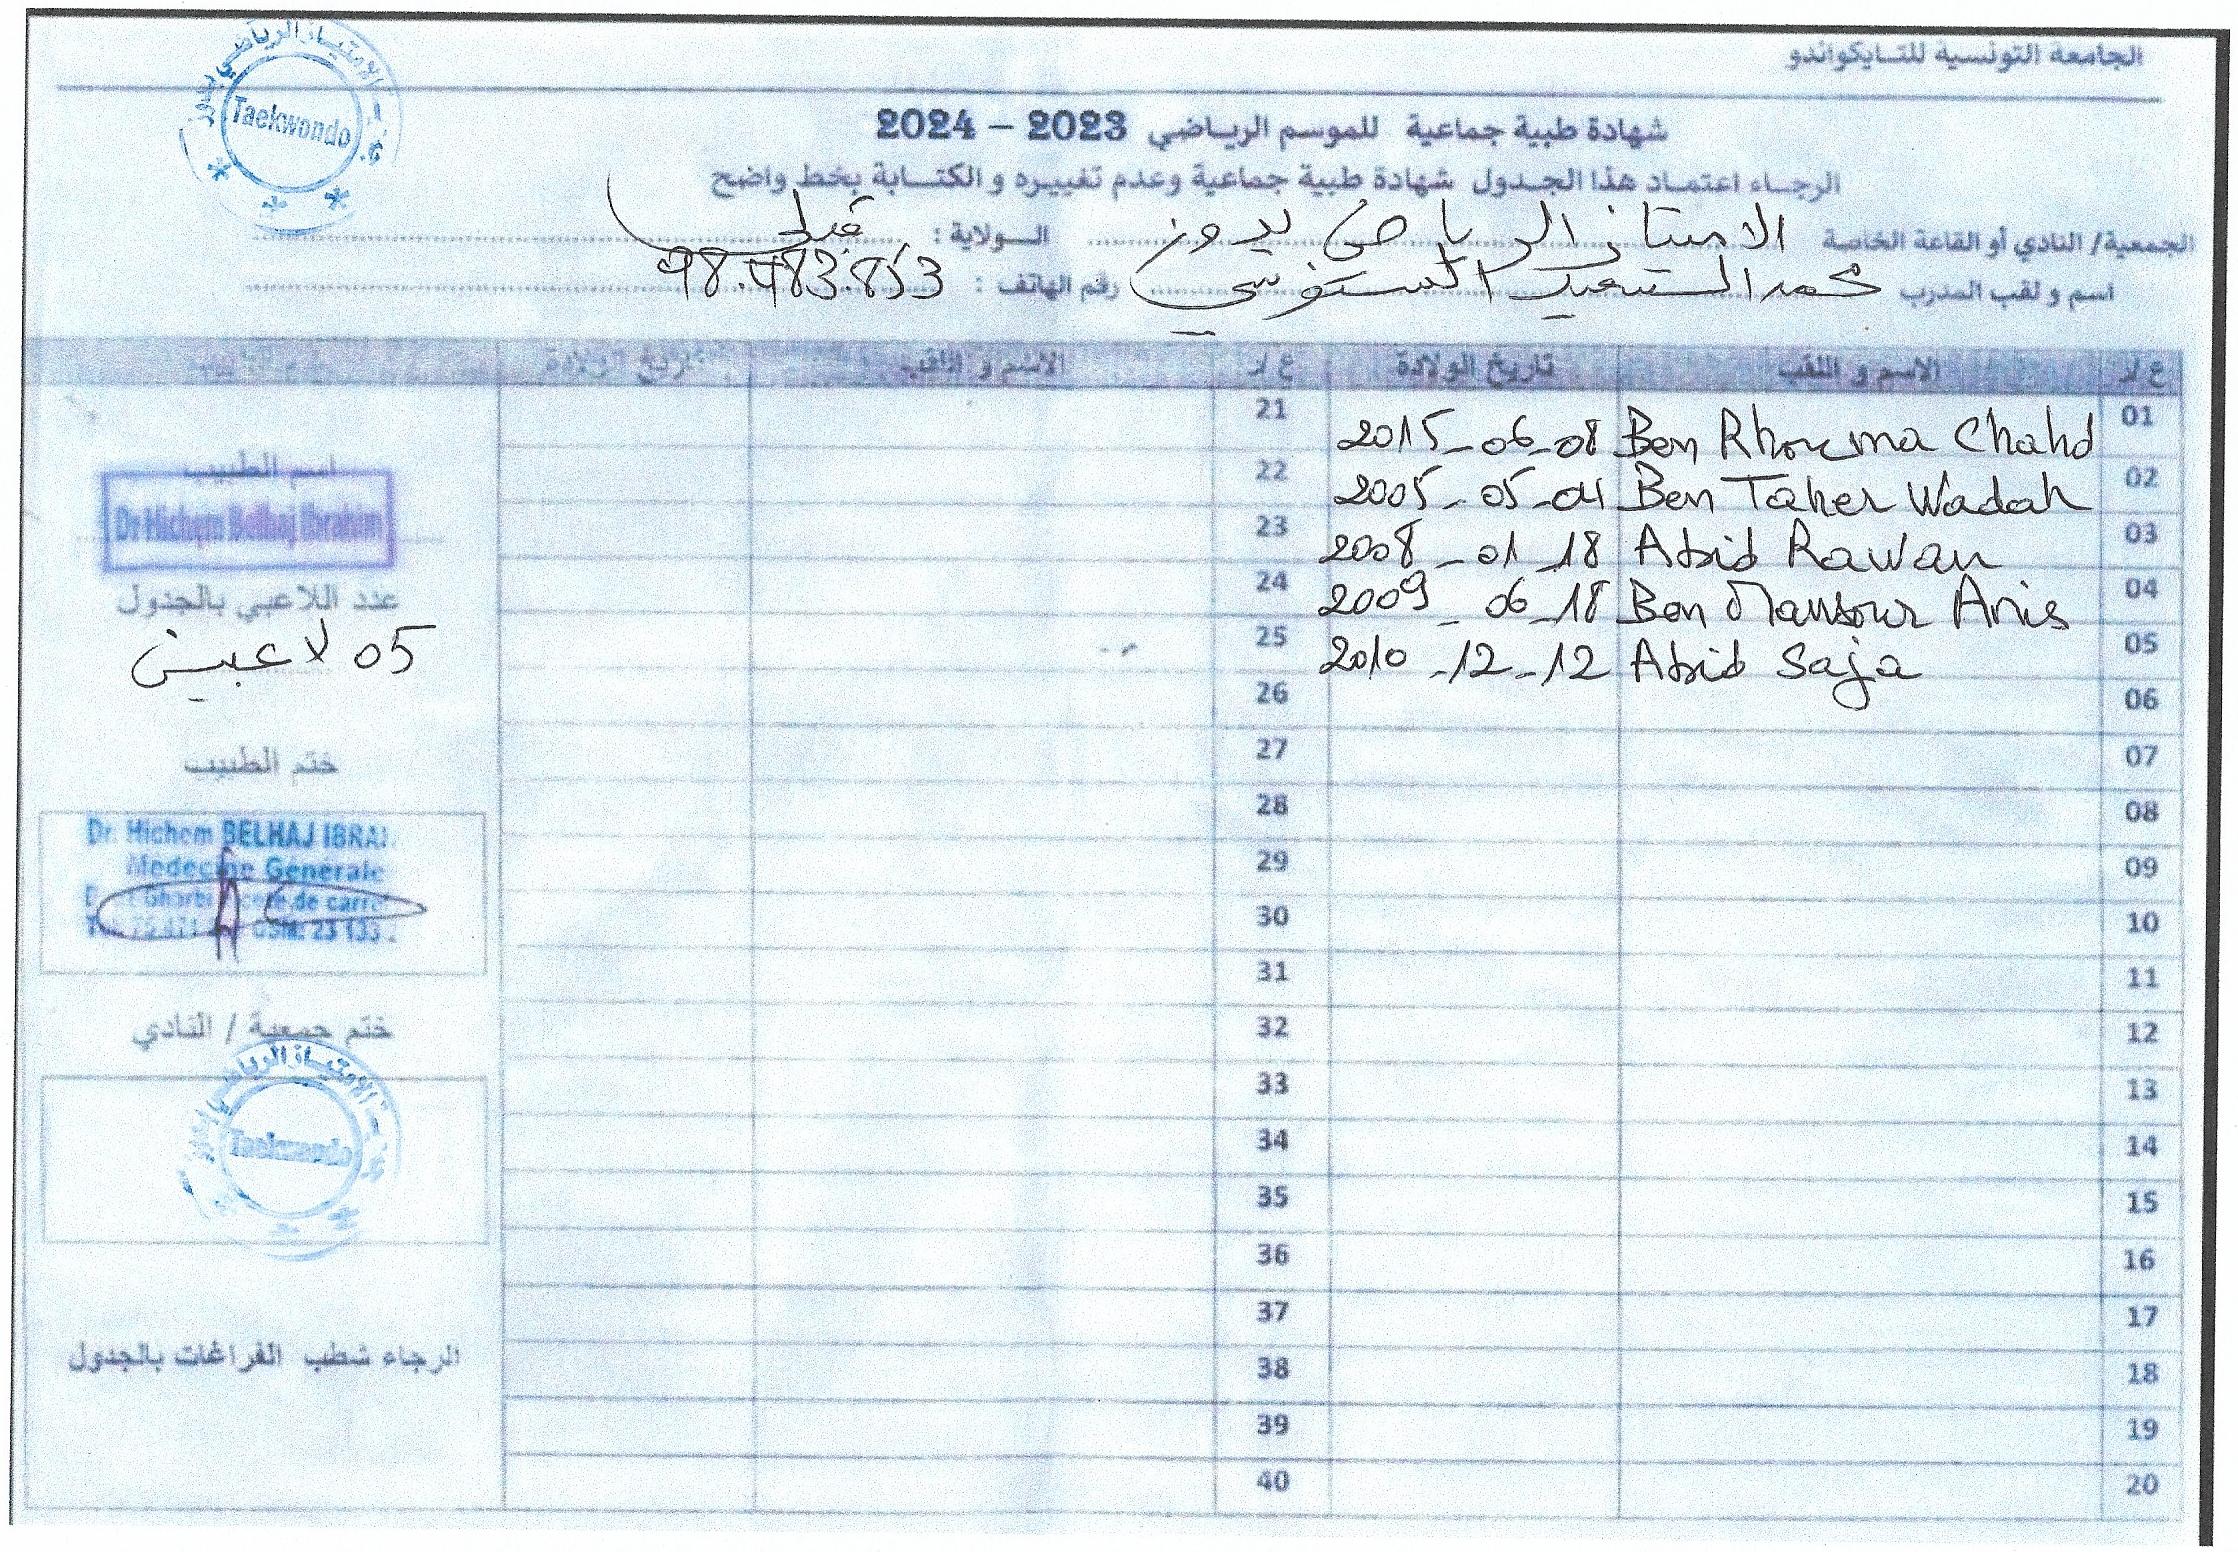 الجامعة التونسية للتـايكواندو
الامتيـاز الرياضي بدوز
Taekwondo
شهادة طبية جماعية للموسم الرياضي 2023 – 2024
الرجـاء اعتمـاد هذا الجـدول شهادة طبية جماعية وعدم تغييـره و الكتـابة بخط واضح
الجمعية/ النادي أو القاعة الخاصة الامتياز الرياضي بدوز الـولاية : قبلي
اسم و لقب المدرب محمد السعيد السنوسي رقم الهاتف : 98.483.853
ع/ر الاسم و اللقب تاريخ الولادة ع/ر الاسم و اللقب تاريخ الولادة
01 Ben Rhouma Chahd 2015-06-08 21
02 Ben Taher Wadah 2005-05-04 22
03 Abid Rawan 2008-01-18 23
04 Ben Mansour Anis 2009-06-18 24
05 Abid Saja 2010-12-12 25
06 26
07 27
08 28
09 29
10 30
11 31
12 32
13 33
14 34
15 35
16 36
17 37
18 38
19 39
20 40
اسم الطبيب
Dr Hichem Belhaj Ibrahim
عدد اللاعبي بالجدول
05 لاعبين
ختم الطبيب
Dr. Hichem BELHAJ IBRAI
Medecine Générale
de carre
GSM: 23 133
ختم جمعية / النادي
الامتيـاز الرياضي
Taekwondo
الرجاء شطب الفراغات بالجدول